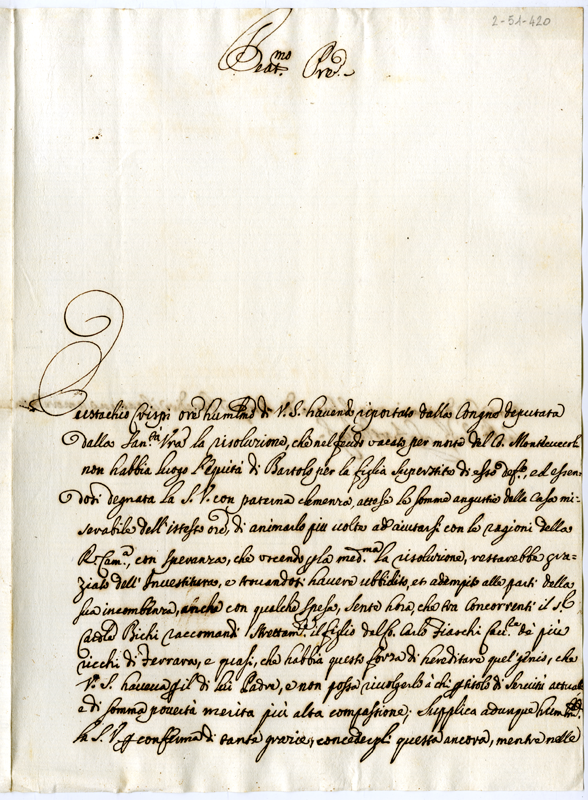 2-51-420
Beat.mo Pre.
Eustachio Crispi ore humilmo di V. S. havendo riportato dalla Congne deputata
dalla San.tà Vra la risoluzione, che nel feudo vacato per morte del Co. Montecucoli
non habbia luogo l'Equità di Bartolo per la figlia superstite di esso def.o, ed essen-
dosi degnata la S. V. con paterna clemenza, attesa la somma angustia della Casa mi-
serabile dell'istesso ore, di animarlo più volte ad aiutarsi con le ragioni della
R. Cam.a, con speranza, che uscendo p la med.ma la risoluzione, restarebbe gra-
ziato dell'Investitura, e trovandosi havere ubbidito, et adempito alle parti della
sua incombenza, anche con qualche spesa, sente hora, che tra Concorrenti il S.r
Cardle Bichi raccomandi strettam.te il figlio del Co. Carlo Fiaschi Cav.re de più
ricchi di Ferrara, e quasi, che habbia questo forza di hereditare quel genio, che
V. S. haveva p il di lui Padre, e non possa rivolgerlo à chi p titolo di servitù attuale
e di somma povertà merita più alta compassione; supplica adunque humilm.te
la S. V. p conferma di tante grazie, concedergli questa ancora, mentre nelle